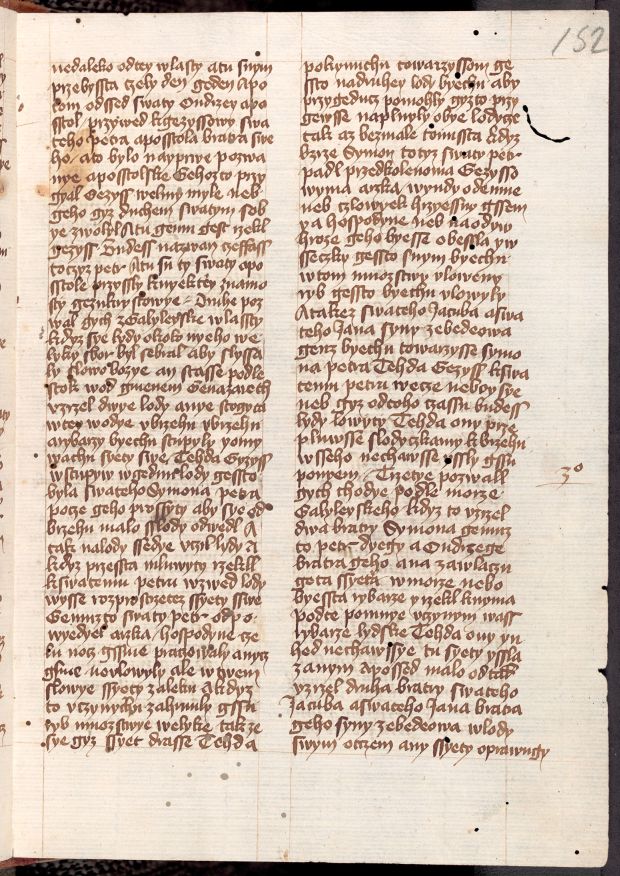 152
nedaleko odtey wlasty atu snym
przebyssta czely den geden Apo
stol odssed swaty Ondrzey apo
sstol przywed kgezyssowy swa
teho Petra aposstola bratra swe
ho Ato bylo nayprwe pozwa
nye aposstolske Gehozto przy
gyal Gezyss welmy myle neb
geho gyz duchem swatym sob
ye zwolyl Atu gemu gest rzekl
gezyss Budess nazwan zeffass
toczyz petr Atu su ty swaty apo
sstole przyssly knyektey znamo
sty gezukrystowye Druhe poz
wal gych zGalyleyske wlassty
kdyz sye lydy okolo nyeho we
lyky sbor byl sebral aby slyssa
ly slowo bozye an stasse podle
stok wod gmenem Genazareth
vzrzel dwye lody anye stogyta
wtey wodye vbrzehu vbrzehu
arybarzy byechu stupyly yomy
wachu syety swe Tehda Gezyss
wstupyw wgednu lody gessto
byla swateho Symona petra
pocze geho prossyty aby sye od
brzehu malo sslody odwedl A
tak nalody ssedye vczil lydy A
kdyz przessta mluwyty rzekl
kswatemu petru wzwed lody
wysse rozprostrzetez ssyety swe
Gemuzto swaty petr odpo
wyedyel arzka hospodyne cze
lu nocz gssme pracowaly anycz
gsme nevlowyly ale wtwem
slowye ssyety zalekn Akdyz
to vczynychu zahrnuly gssu
ryb mnozstwye welyke takze
sye gyz ssyet drasse Tehda
pokynuchu towarzyssom ge
ssto nadruhey lody byechu aby
przygeducz pomohly gyzto przy
gewsse naplnyly obye lodyge
tak az bezmale tonussta Akdyz
vzrze Symon totyz swaty petr
padl przedkolenoma Gezysso
wyma arzka wyndy odemne
neb czlowyek hrzyessny gssem
ya hospodyne neb naodyw
hroze geho byesse obessla yw
sseczky gessto snym byechu
wtom mnozstwy vloweny
ryb gessto byechu vlowyly
Atakez swateho Jacuba aswa
teho Jana syny zebedeowa
genz byechu towarzysse symo
na petra Tehda Gezyss kswa
temu petru wecze neboy sye
neb gyz odtoho czassu budess
lydy lowyty Tehda ony prze
pluwsse slodyczkamy kbrzehu
wsseho nechawsse yssly gssu
ponyem Trzetye pozwall
gych chodye podle morze
Galyleyskeho kdyz to vzrzel
dwa bratry Symona gemuz
to petr dyegy a Ondrzege
bratra geho ana zawlaczu
geta ssyeta wmorze nebo
byessta rybarze yrzekl knyma
podte pomnye vczynym wass
rybarze lydske Tehda ony yn
hed nechawssye tu syety yssla
zanym Apossed malo odtad
vzrzel druha bratry swateho
Jacuba aswateho Jana bratra
geho syny zebedeowa wlody
swym otczem any ssyety oprawugy
3o